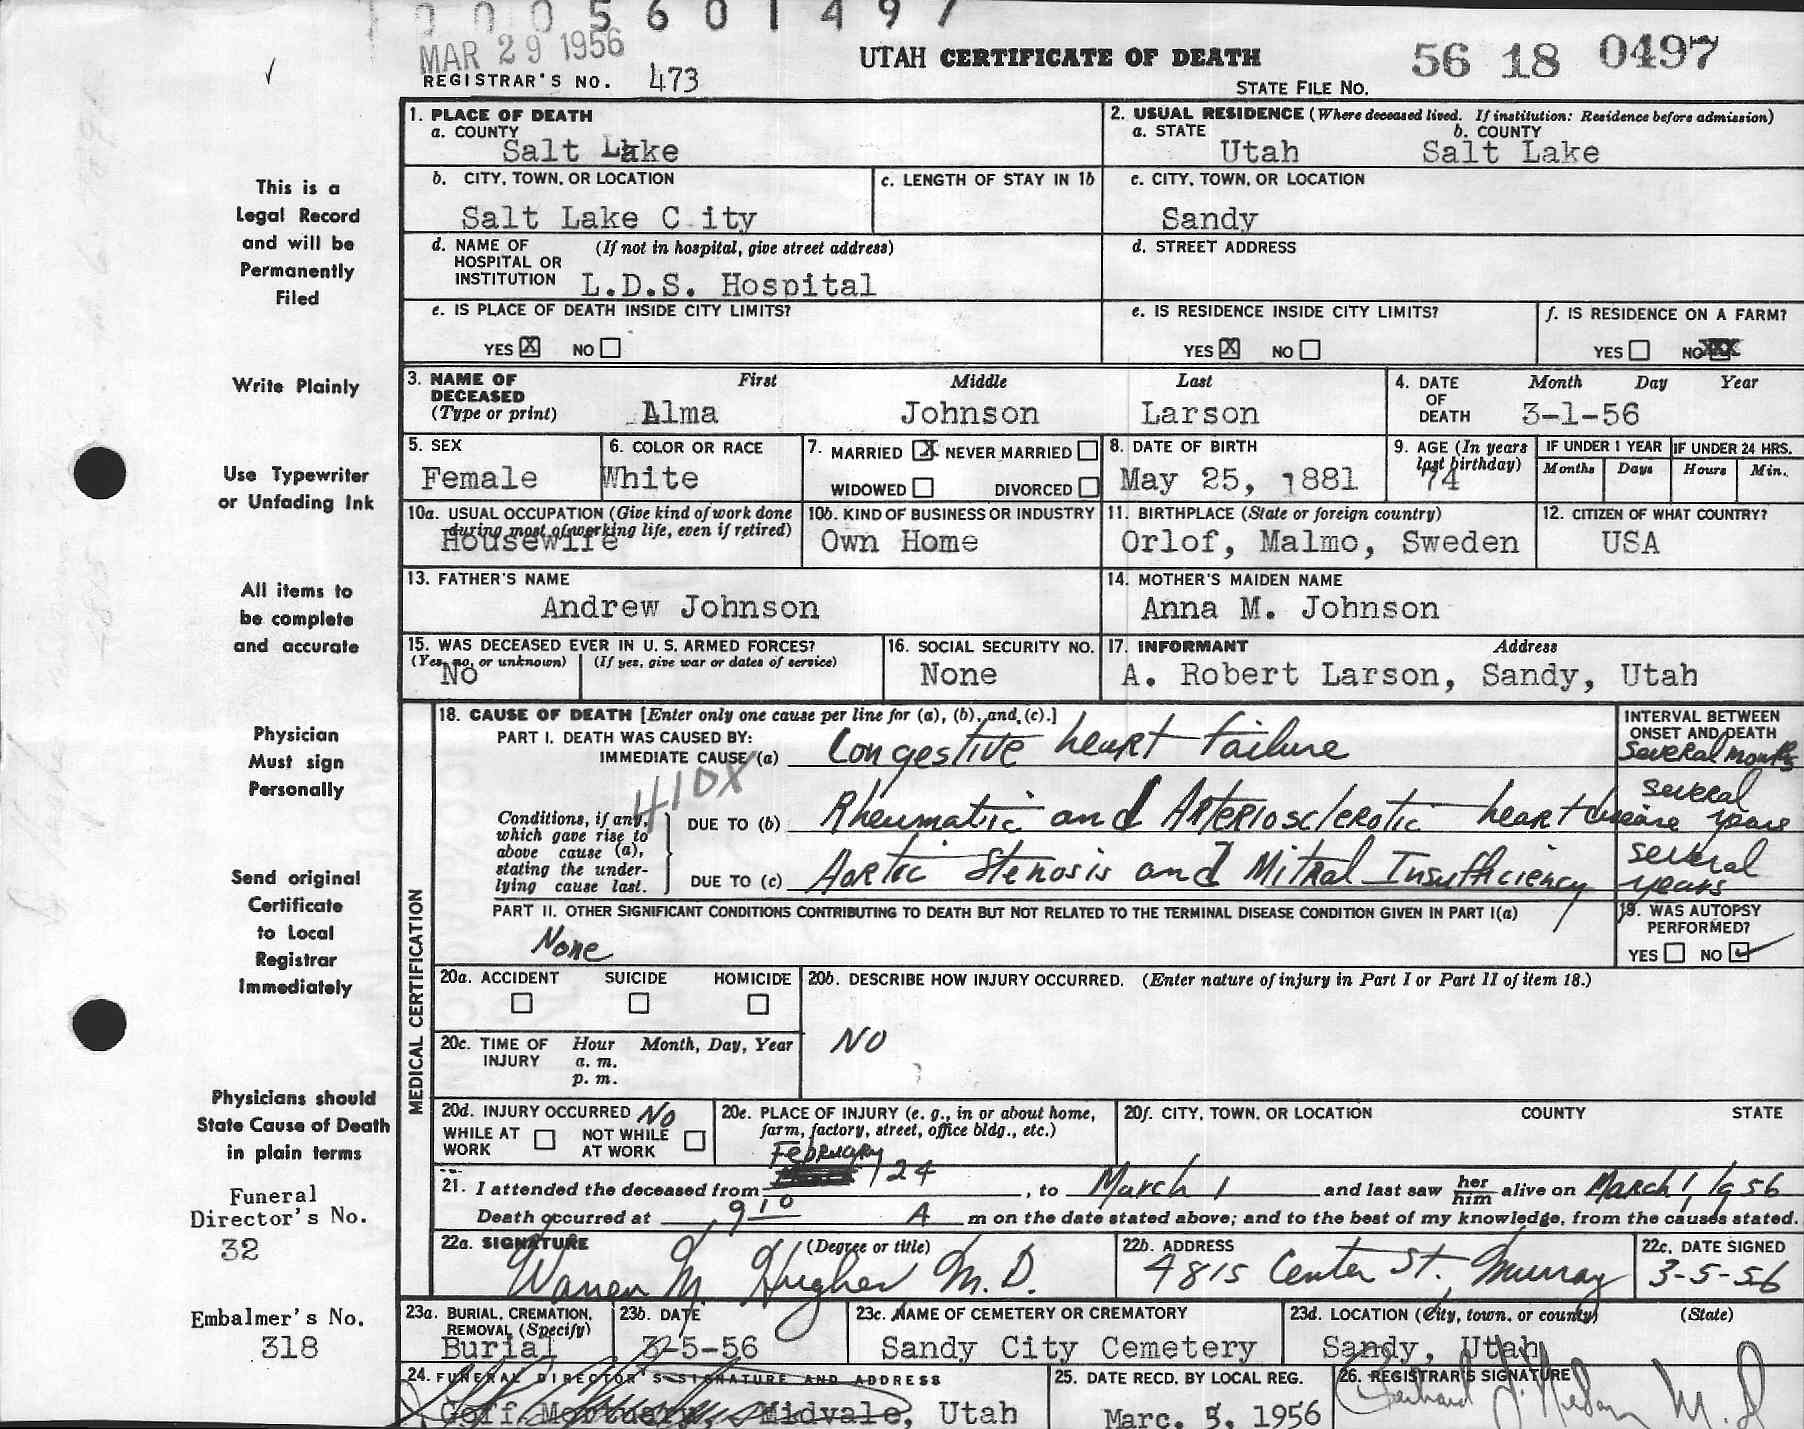 0 0 0 5 6 0 1 4 9 7
MAR 29 1956
UTAH CERTIFICATE OF DEATH
56 18 0497
REGISTRAR'S NO. 473
STATE FILE NO.
1. PLACE OF DEATH
a. COUNTY
Salt Lake
2. USUAL RESIDENCE (Where deceased lived. If institution: Residence before admission)
a. STATE b. COUNTY
Utah Salt Lake
b. CITY, TOWN, OR LOCATION
Salt Lake C ity
c. LENGTH OF STAY IN 1b
c. CITY, TOWN, OR LOCATION
Sandy
d. NAME OF (If not in hospital, give street address)
HOSPITAL OR
INSTITUTION L.D.S. Hospital
d. STREET ADDRESS
e. IS PLACE OF DEATH INSIDE CITY LIMITS?
YES X NO
e. IS RESIDENCE INSIDE CITY LIMITS?
YES X NO
f. IS RESIDENCE ON A FARM?
YES NO XXX
3. NAME OF DECEASED (Type or print)
First Middle Last
Alma Johnson Larson
4. DATE OF DEATH
Month Day Year
3-1-56
5. SEX
Female
6. COLOR OR RACE
White
7. MARRIED X NEVER MARRIED
WIDOWED DIVORCED
8. DATE OF BIRTH
May 25, 1881
9. AGE (In years last birthday)
74
IF UNDER 1 YEAR
Months Days
IF UNDER 24 HRS.
Hours Min.
10a. USUAL OCCUPATION (Give kind of work done
during most of working life, even if retired)
Housewife
10b. KIND OF BUSINESS OR INDUSTRY
Own Home
11. BIRTHPLACE (State or foreign country)
Orlof, Malmo, Sweden
12. CITIZEN OF WHAT COUNTRY?
USA
13. FATHER'S NAME
Andrew Johnson
14. MOTHER'S MAIDEN NAME
Anna M. Johnson
15. WAS DECEASED EVER IN U. S. ARMED FORCES?
(Yes, no, or unknown) (If yes, give war or dates of service)
No
16. SOCIAL SECURITY NO.
None
17. INFORMANT Address
A. Robert Larson, Sandy, Utah
MEDICAL CERTIFICATION
18. CAUSE OF DEATH [Enter only one cause per line for (a), (b), and (c).]
PART I. DEATH WAS CAUSED BY:
IMMEDIATE CAUSE (a) Congestive heart failure
410X
Conditions, if any,
which gave rise to
above cause (a),
stating the under-
lying cause last.
DUE TO (b) Rheumatic and Arteriosclerotic heart disease
DUE TO (c) Aortic Stenosis and Mitral Insufficiency
INTERVAL BETWEEN
ONSET AND DEATH
several months
several
years
several
years
PART II. OTHER SIGNIFICANT CONDITIONS CONTRIBUTING TO DEATH BUT NOT RELATED TO THE TERMINAL DISEASE CONDITION GIVEN IN PART I(a)
None
19. WAS AUTOPSY
PERFORMED?
YES NO ✓
20a. ACCIDENT SUICIDE HOMICIDE
20b. DESCRIBE HOW INJURY OCCURRED. (Enter nature of injury in Part I or Part II of item 18.)
NO
20c. TIME OF INJURY
Hour Month, Day, Year
a. m.
p. m.
20d. INJURY OCCURRED No
WHILE AT WORK NOT WHILE AT WORK
20e. PLACE OF INJURY (e. g., in or about home,
farm, factory, street, office bldg., etc.)
20f. CITY, TOWN, OR LOCATION COUNTY STATE
21. I attended the deceased from February 24, to March 1 and last saw her him alive on March 1, 1956
Death occurred at 9 10 A m on the date stated above; and to the best of my knowledge, from the causes stated.
22a. SIGNATURE (Degree or title)
Warren M. Hughes M.D.
22b. ADDRESS
4815 Center St. Murray
22c. DATE SIGNED
3-5-56
23a. BURIAL, CREMATION,
REMOVAL (Specify)
Burial
23b. DATE
3-5-56
23c. NAME OF CEMETERY OR CREMATORY
Sandy City Cemetery
23d. LOCATION (City, town, or county) (State)
Sandy, Utah
24. FUNERAL DIRECTOR'S SIGNATURE AND ADDRESS
Goff Mortuary, Midvale, Utah
25. DATE RECD. BY LOCAL REG.
Marc. 5, 1956
26. REGISTRAR'S SIGNATURE
M.D.
✓
This is a
Legal Record
and will be
Permanently
Filed
Write Plainly
Use Typewriter
or Unfading Ink
All items to
be complete
and accurate
Physician
Must sign
Personally
Send original
Certificate
to Local
Registrar
Immediately
Physicians should
State Cause of Death
in plain terms
Funeral
Director's No.
32
Embalmer's No.
318